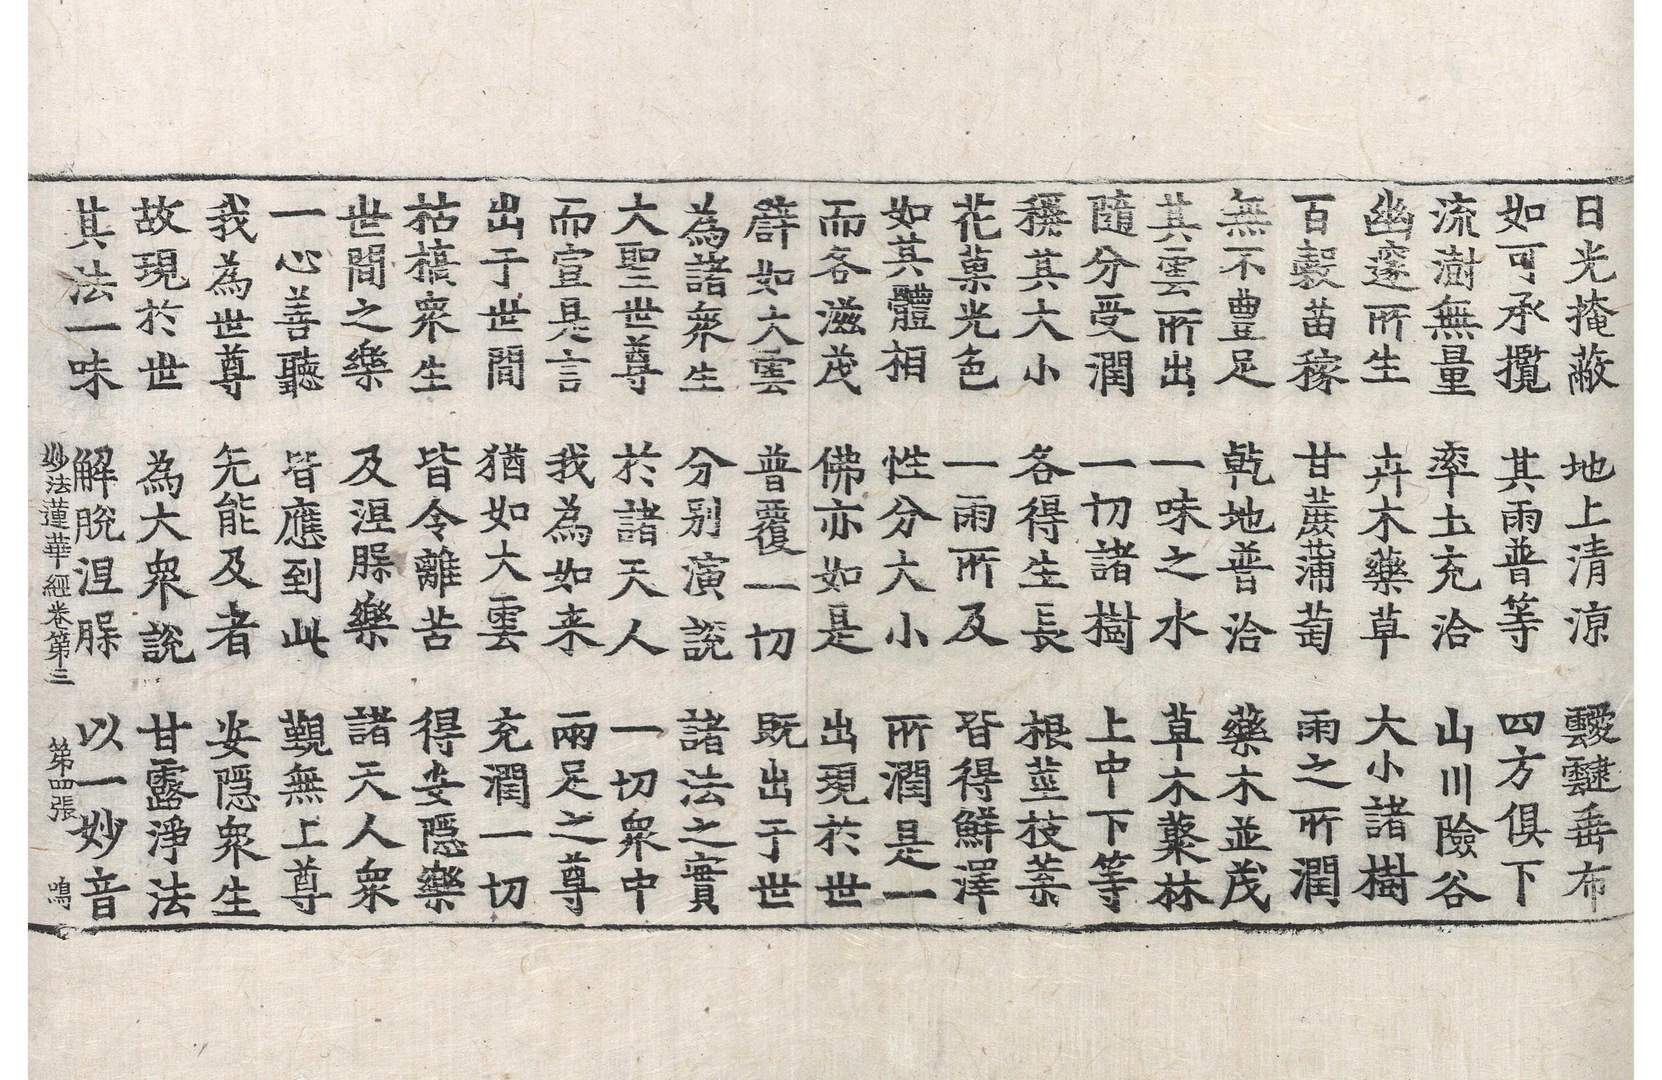 日光掩蔽 地上清涼 靉靆垂布
如可承攬 其雨普等 四方俱下
流澍無量 率土充洽 山川險谷
幽邃所生 卉木藥草 大小諸樹
百穀苗稼 甘蔗蒲萄 雨之所潤
無不豐足 乾地普洽 藥木並茂
其雲所出 一味之水 草木藂林
隨分受潤 一切諸樹 上中下等
稱其大小 各得生長 根莖枝葉
花菓光色 一雨所及 皆得鮮澤
如其體相 性分大小 所潤是一
而各滋茂 佛亦如是 出現於世
譬如大雲 普覆一切 既出于世
為諸衆生 分別演說 諸法之實
大聖世尊 於諸天人 一切衆中
而宣是言 我為如来 兩足之尊
出于世間 猶如大雲 充潤一切
枯槁衆生 皆令離苦 得安隱樂
世間之樂 及涅槃樂 諸天人衆
一心善聽 皆應到此 覲無上尊
我為世尊 无能及者 安隱衆生
故現於世 為大衆說 甘露淨法
其法一味 解脫涅槃 以一妙音
妙法蓮華經卷第三 第四張 鳴